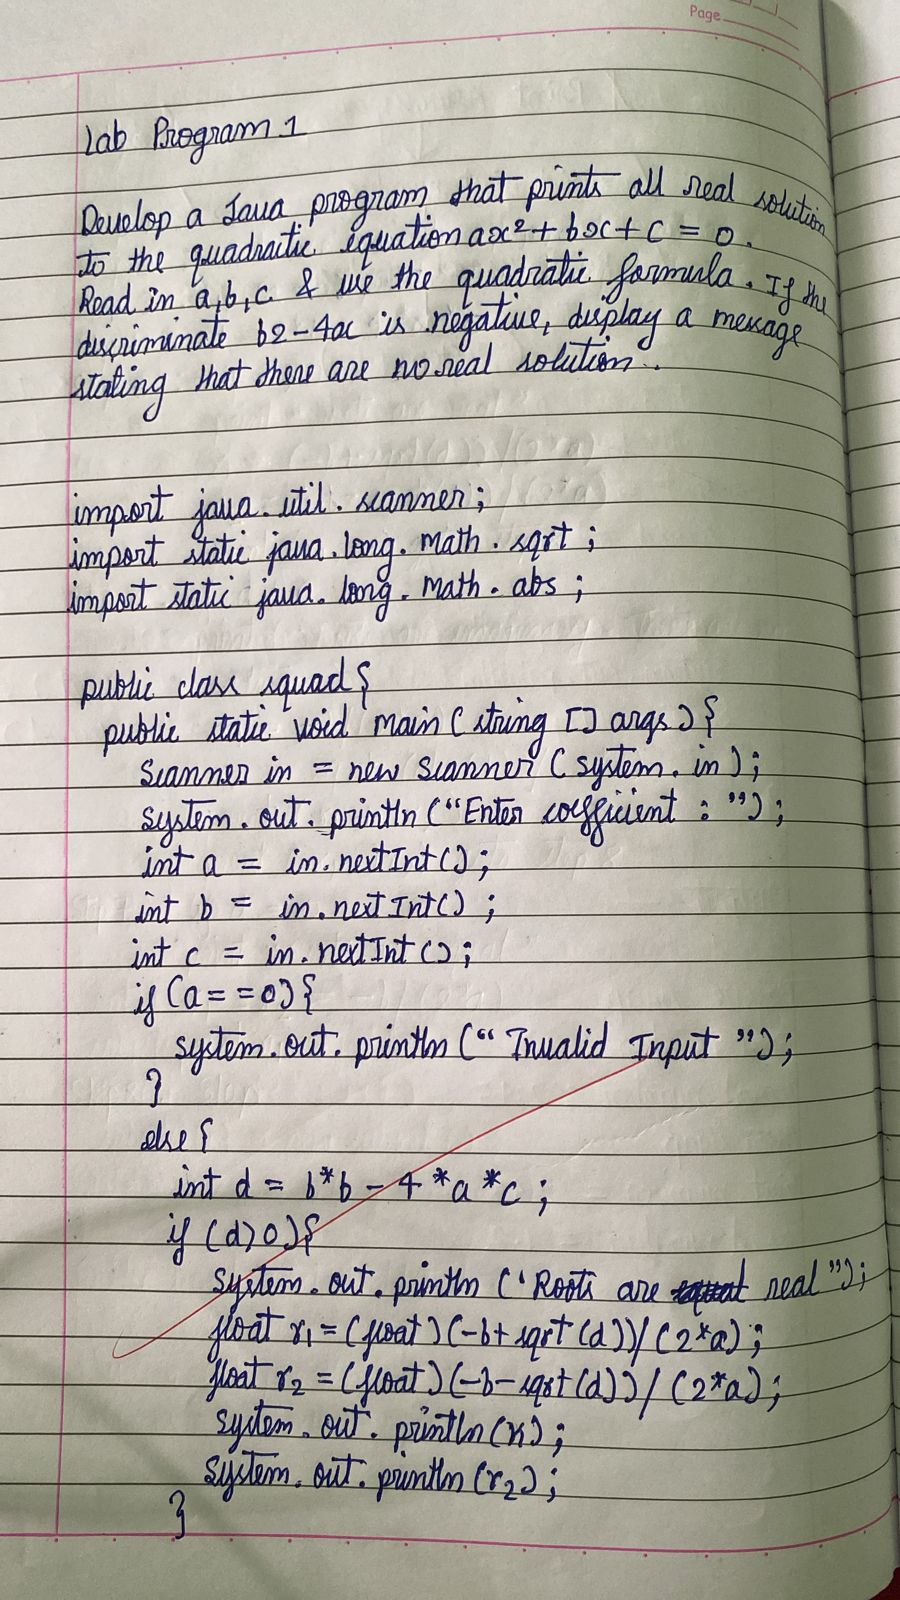 Page
Lab Program 1
Develop a Java program that prints all real solution
to the quadractic equation ax² + bx + c = 0.
Read in a,b,c & use the quadratic formula. If the
discriminate b2-4ac is negative, display a message
stating that there are no real solution.
import java.util.scanner;
import static java.long.Math.sqrt;
import static java.long.Math.abs;
public class squad{
public static void main(string [] args){
Scanner in = new Scanner(system.in);
system.out.println("Enter coefficient : ");
int a = in.nextInt();
int b = in.nextInt();
int c = in.nextInt();
if(a==0){
system.out.println("Invalid Input");
}
else{
int d = b*b-4*a*c;
if(d>0){
system.out.println('Roots are real");
float r1=(float)(-b+sqrt(d))/(2*a);
float r2=(float)(-b-sqrt(d))/(2*a);
system.out.println(r1);
system.out.println(r2);
}